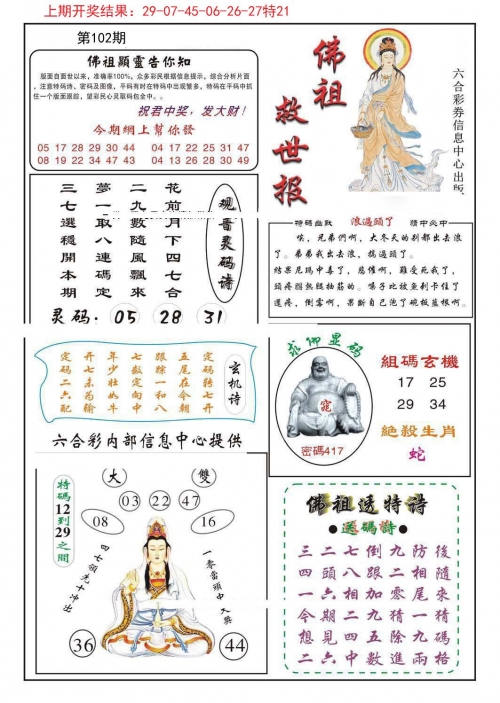 上期开奖结果：29-07-45-06-26-27特21
第102期
佛祖顯靈告你知
版面自面世以来，准确率100%，众多彩民根据信息提示，综合分析片面
，注意特码诗、密码及图像，平码有时在特码中出现繁多，特码在平码中抓
住一个版面跟踪，望彩民心灵取码包全中。。
祝君中奖，发大财！
今期網上幫你發
05 17 28 29 30 44 04 17 22 25 31 47
08 19 22 34 47 43 04 13 26 28 30 49
佛祖救世报
六合彩券信息中心出版
花前月下四七合
二九數隨風飄來
夢一取八連碼定
三七選穩開本期
观音灵码诗
灵码：05 28 31
特码幽默 浪過頭了 猜中必中
唉，兄弟們啊，大冬天的别都出去浪
了。弟弟我出去浪，搞過頭了。
结果尼瑪中毒了，
頭疼
道疼，倒霉啊，果斷自己泡了碗板藍根啊。
玄机诗
定碼转七开
五尾在今朝
跟踪一和八
七數定向中
年少壮如牛
开七未为输
定碼二六配
六合彩内部信息中心提供
求仰显码
窕
密碼417
組碼玄機
17 25
29 34
絶殺生肖
蛇
特碼12到29之間
大 雙
03 22 47
08 16
四七領先十冲出
一零當頭中大獎
36 44
佛祖透特诗
送碼詩
三二七倒九防後
四頭八跟二相隨
一六相加零尾來
今期二九猜一猜
想見四五除九碼
二六中數進兩格